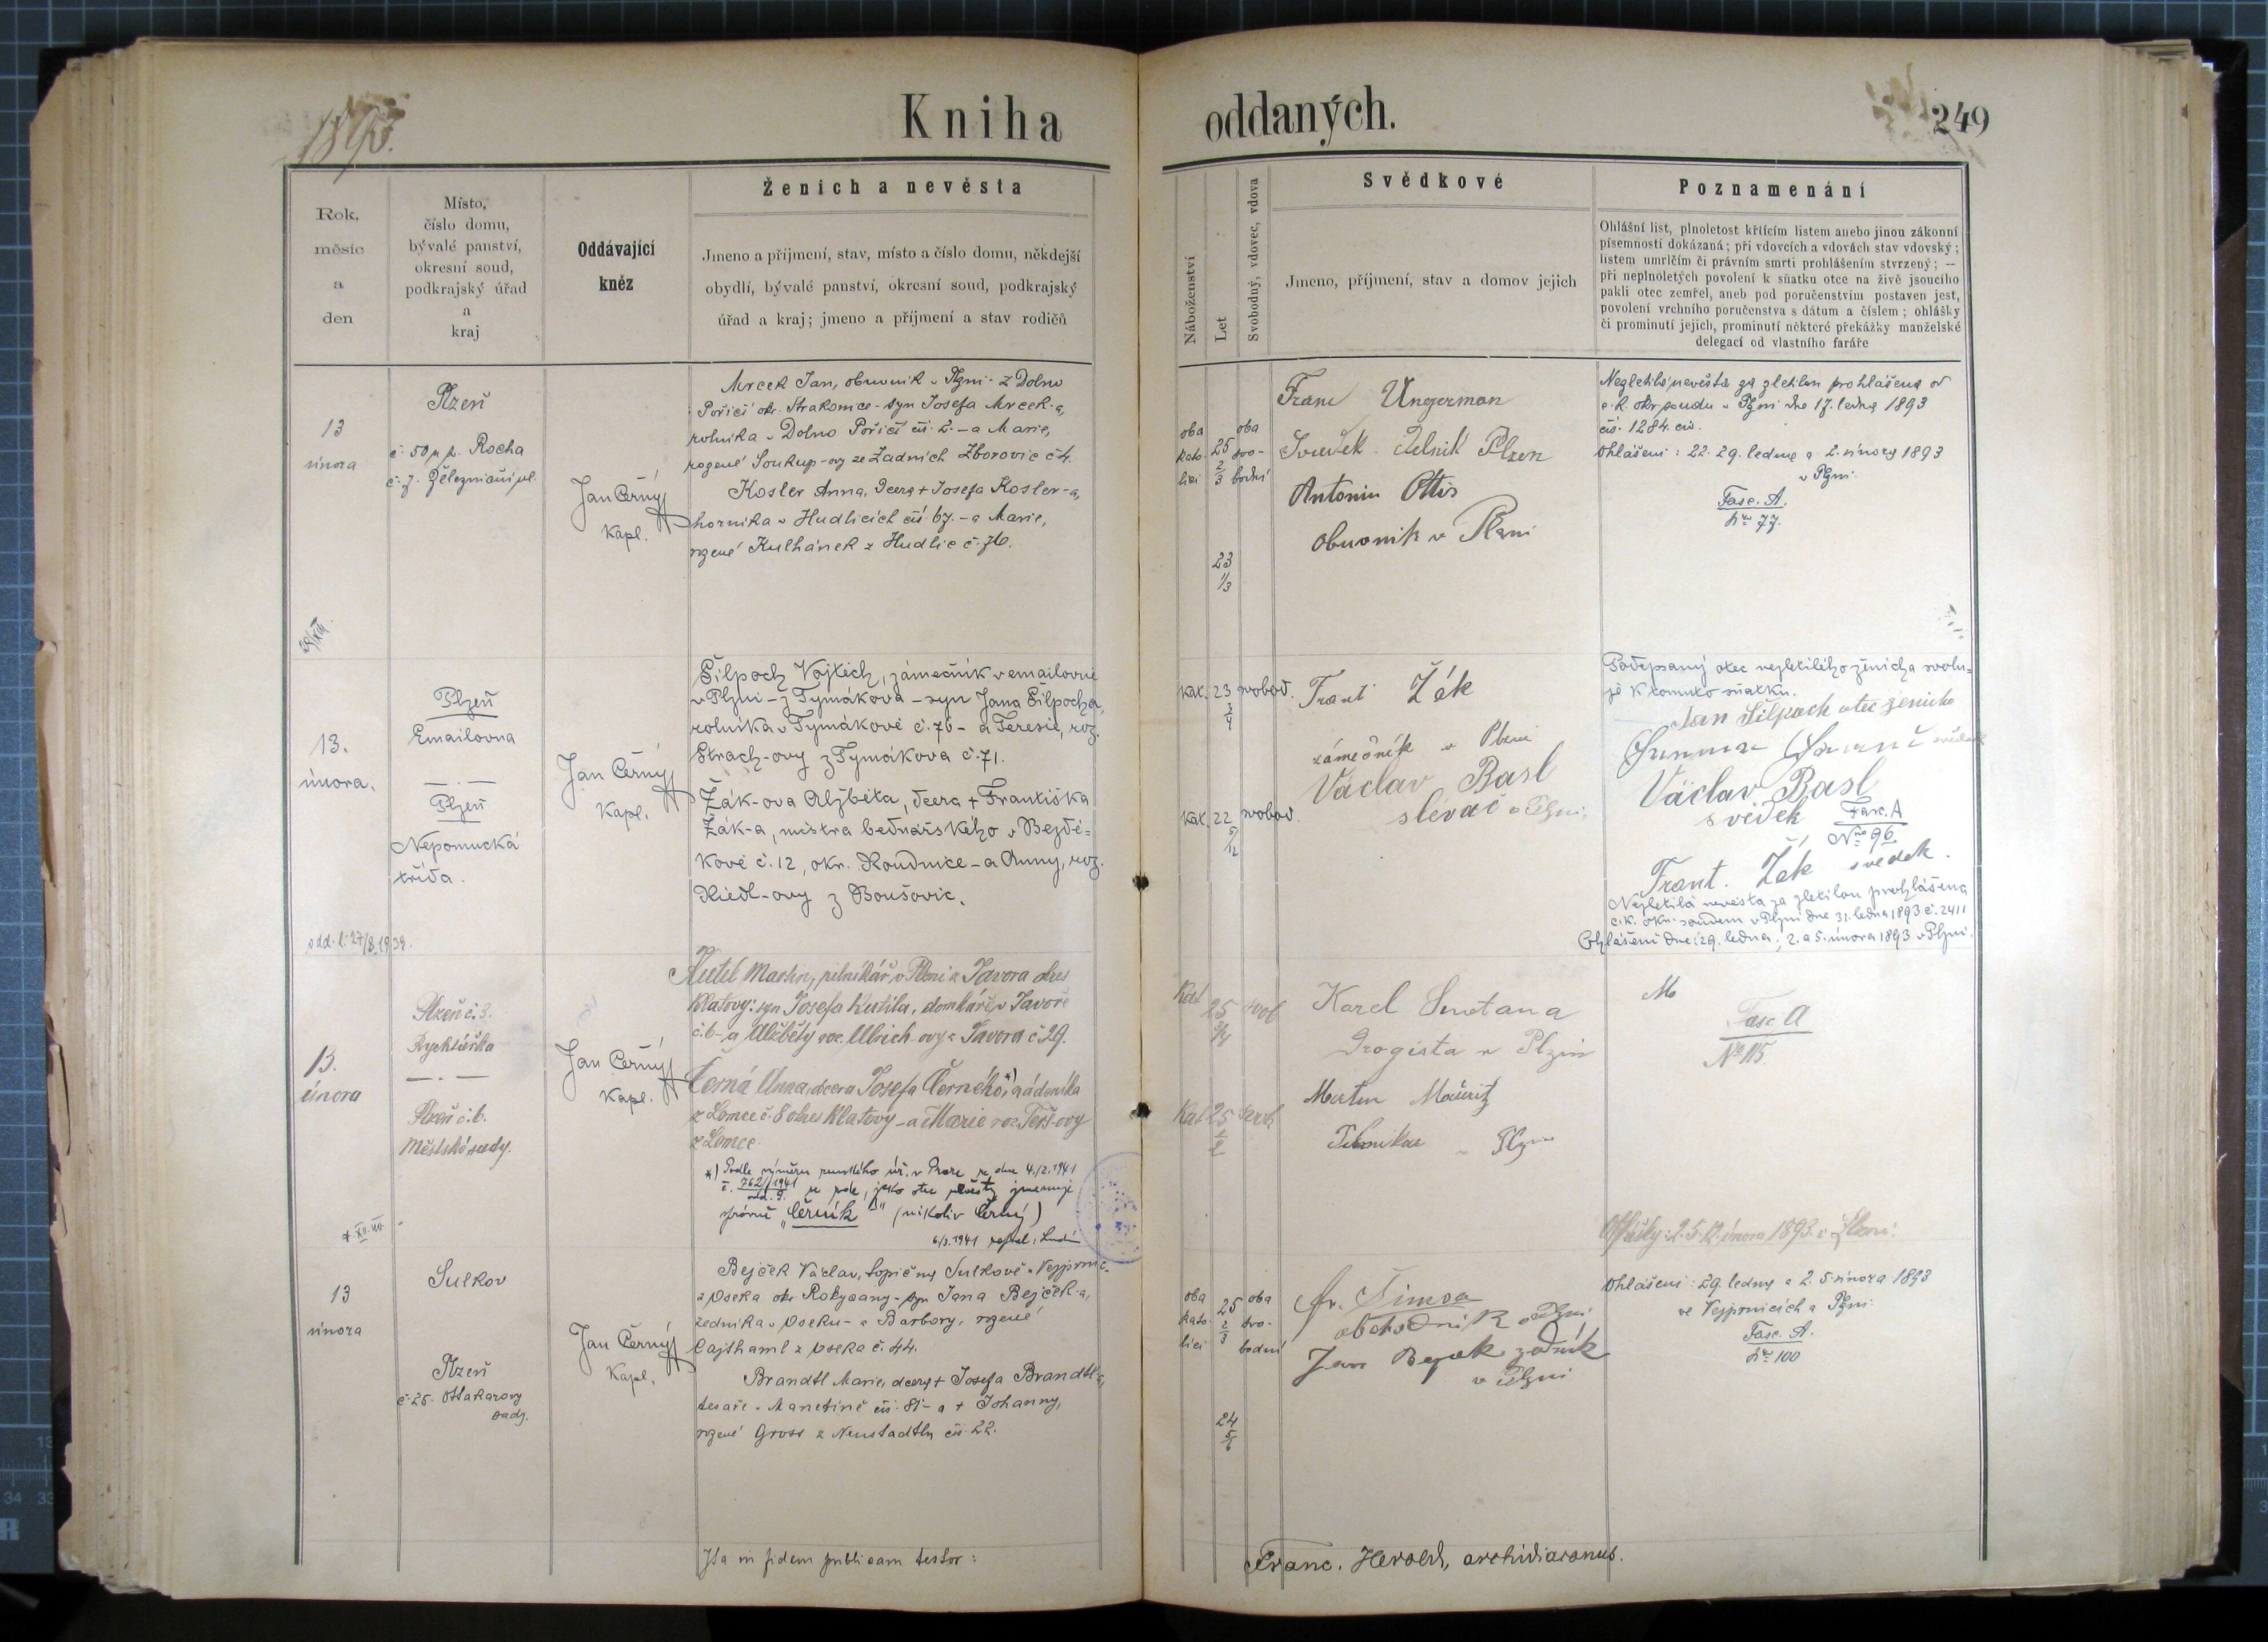 1893.
Kniha
oddaných.
249
Rok,
měsíc
a
den
Místo,
číslo domu,
bývalé panství,
okresní soud,
podkrajský úřad
a
kraj
Oddávající
kněz
Ženich a nevěsta
Jmeno a přijmení, stav, místo a číslo domu, někdejší
obydlí, bývalé panství, okresní soud, podkrajský
úřad a kraj; jmeno a příjmení a stav rodičů
Náboženství
Let
Svobodný, vdovec, vdova
Svědkové
Jmeno, příjmení, stav a domov jejich
Poznamenání
Ohlášní list, plnoletost křticím listem anebo jinou zákonní
písemností dokázaná; při vdovcích a vdovách stav vdovský;
listem umrlčím či právním smrti prohlášením stvrzený; —
při neplnoletých povolení k sňatku otce na živě jsoucího
pakli otec zemřel, aneb pod poručenstvím postaven jest,
povolení vrchního poručenstva s dátum a číslem; ohlášky
či prominutí jejich, prominutí některé překážky manželské
delegací od vlastního faráře
13
února
Plzeň
č. 50 u p. Rocha
č. 7. Železniční ul.
Jan Černý
Kapl.
Mrcek Jan, obuvník v Plzni - z Dolno
Poříčí okr. Strakonice - syn Josefa Mrcek-a,
rolníka v Dolno Poříčí čís. 2. - a Marie,
rozené Soukup-ovy ze Zadních Zborovic č 4.
Kosler Anna, dcera + Josefa Kosler-a,
horníka v Hudlicích čís. 67. - a Marie,
rozené Kulhánek z Hudlic č. 76.
oba
kato-
líci
25
2/3
23
1/3
oba
svo-
bodní
Franc Ungerman
Svědek
Plzen
Antonin Ottis
obuvník v Plzni
Nezletilá nevěsta za zletilou prohlášena od
c. k. okr. soudu v Plzni dne 17. ledna 1893
čís. 1284. civ.
Ohlášení: 22. 29. ledna a 2. února 1893
v Plzni.
Fasc. A.
Nro 77.
13.
února.
Plzeň
Emailovna
Plzeň
Nepomucká
třída.
Jan Černý
Kapl.
Šilpoch Vojtěch, zámečník v emailovně
v Plzni - z Tymákova - syn Jana Šilpocha,
rolníka v Tymákově č. 76 - a Terezie, roz.
Strach-ovy z Tymákova č. 71.
Žák-ova Alžběta, dcera + Františka
Žák-a, mistra bednářského v Bezdě-
kově č. 12, okr. Roudnice - a Anny, roz.
Riedl-ovy z Boušovic.
kat. 23 svobod.
3/4
kat. 22 svobod.
5/12
Frant Žák
zámečník v Plzni
Václav Basl
slévač v Plzni.
Podepsaný otec nezletilého ženicha svolu-
je k tomuto sňatku.
Jan Šilpoch otec ženicha
Václav Basl
svědek
Fasc. A
Nro 96
Frant. Žák svědek.
Nezletilá nevěsta za zletilou prohlášena
c. k. okr. soudem v Plzni dne 31. ledna 1893 č. 2411
Ohlášení dne: 29. ledna, 2. a 5. února 1893 v Plzni.
odd. l. 27/8. 1939.
13.
února
Plzeň č. 3.
Rychtářka
Plzeň č. 6.
Městské sady.
Jan Černý
Kapl.
Kutil Martin, pilníkář v Plzni z Javora okres
Klatovy: syn Josefa Kutila, domkáře v Javoře
č. 6 - a Alžběty roz. Ulrich-ovy z Javora č 29.
Černá Anna, dcera Josefa Černého, *) nádeníka
z Lomce č. 8 okres Klatovy - a Marie roz. Terš-ovy
z Lomce.
*) Podle výměru zemského úř. v Praze ze dne 4./2. 1941
č. 762/1941 odd. 9. se
jako otec nevěsty jmenuje
správně „Černík" (nikoliv Černý)
6/3. 1941
Kat 25 svob
3/4
Kat 25 svob
1/2
Karel Smetana
Drogista v Plzni
Martin
Plzni
Fasc A
No 115
Ohlášky: 2. 5. 12. února 1893. v Plzni.
13
února
Sulkov
Plzeň
č. 25. Ottakarovy
sady.
Jan Černý
Kapl.
Bejček Václav, topič na Sulkově u Vejprnic
z Oseka okr. Rokycany - syn Jana Bejček-a,
zedníka v Oseku - a Barbory, rozené
Cajthaml z Oseka č. 44.
Brandtl Marie, dcera + Josefa Brandtl-a,
tesaře v Manetíně čís. 81 - a + Johanny,
rozené Gross z Neustadtlu čís. 22.
oba
kato-
líci
25
2/3
24
5/6
oba
svo-
bodní
Fr. Šimsa
obchodník v Plzni
Jan
zedník
v Plzni
Ohlášení: 29. ledna a 2. 5. února 1893
ve Vejprnicích a Plzni.
Fasc. A.
Nro 100
Ita in fidem publicam testor:
Franc. Herold, archidiaconus.